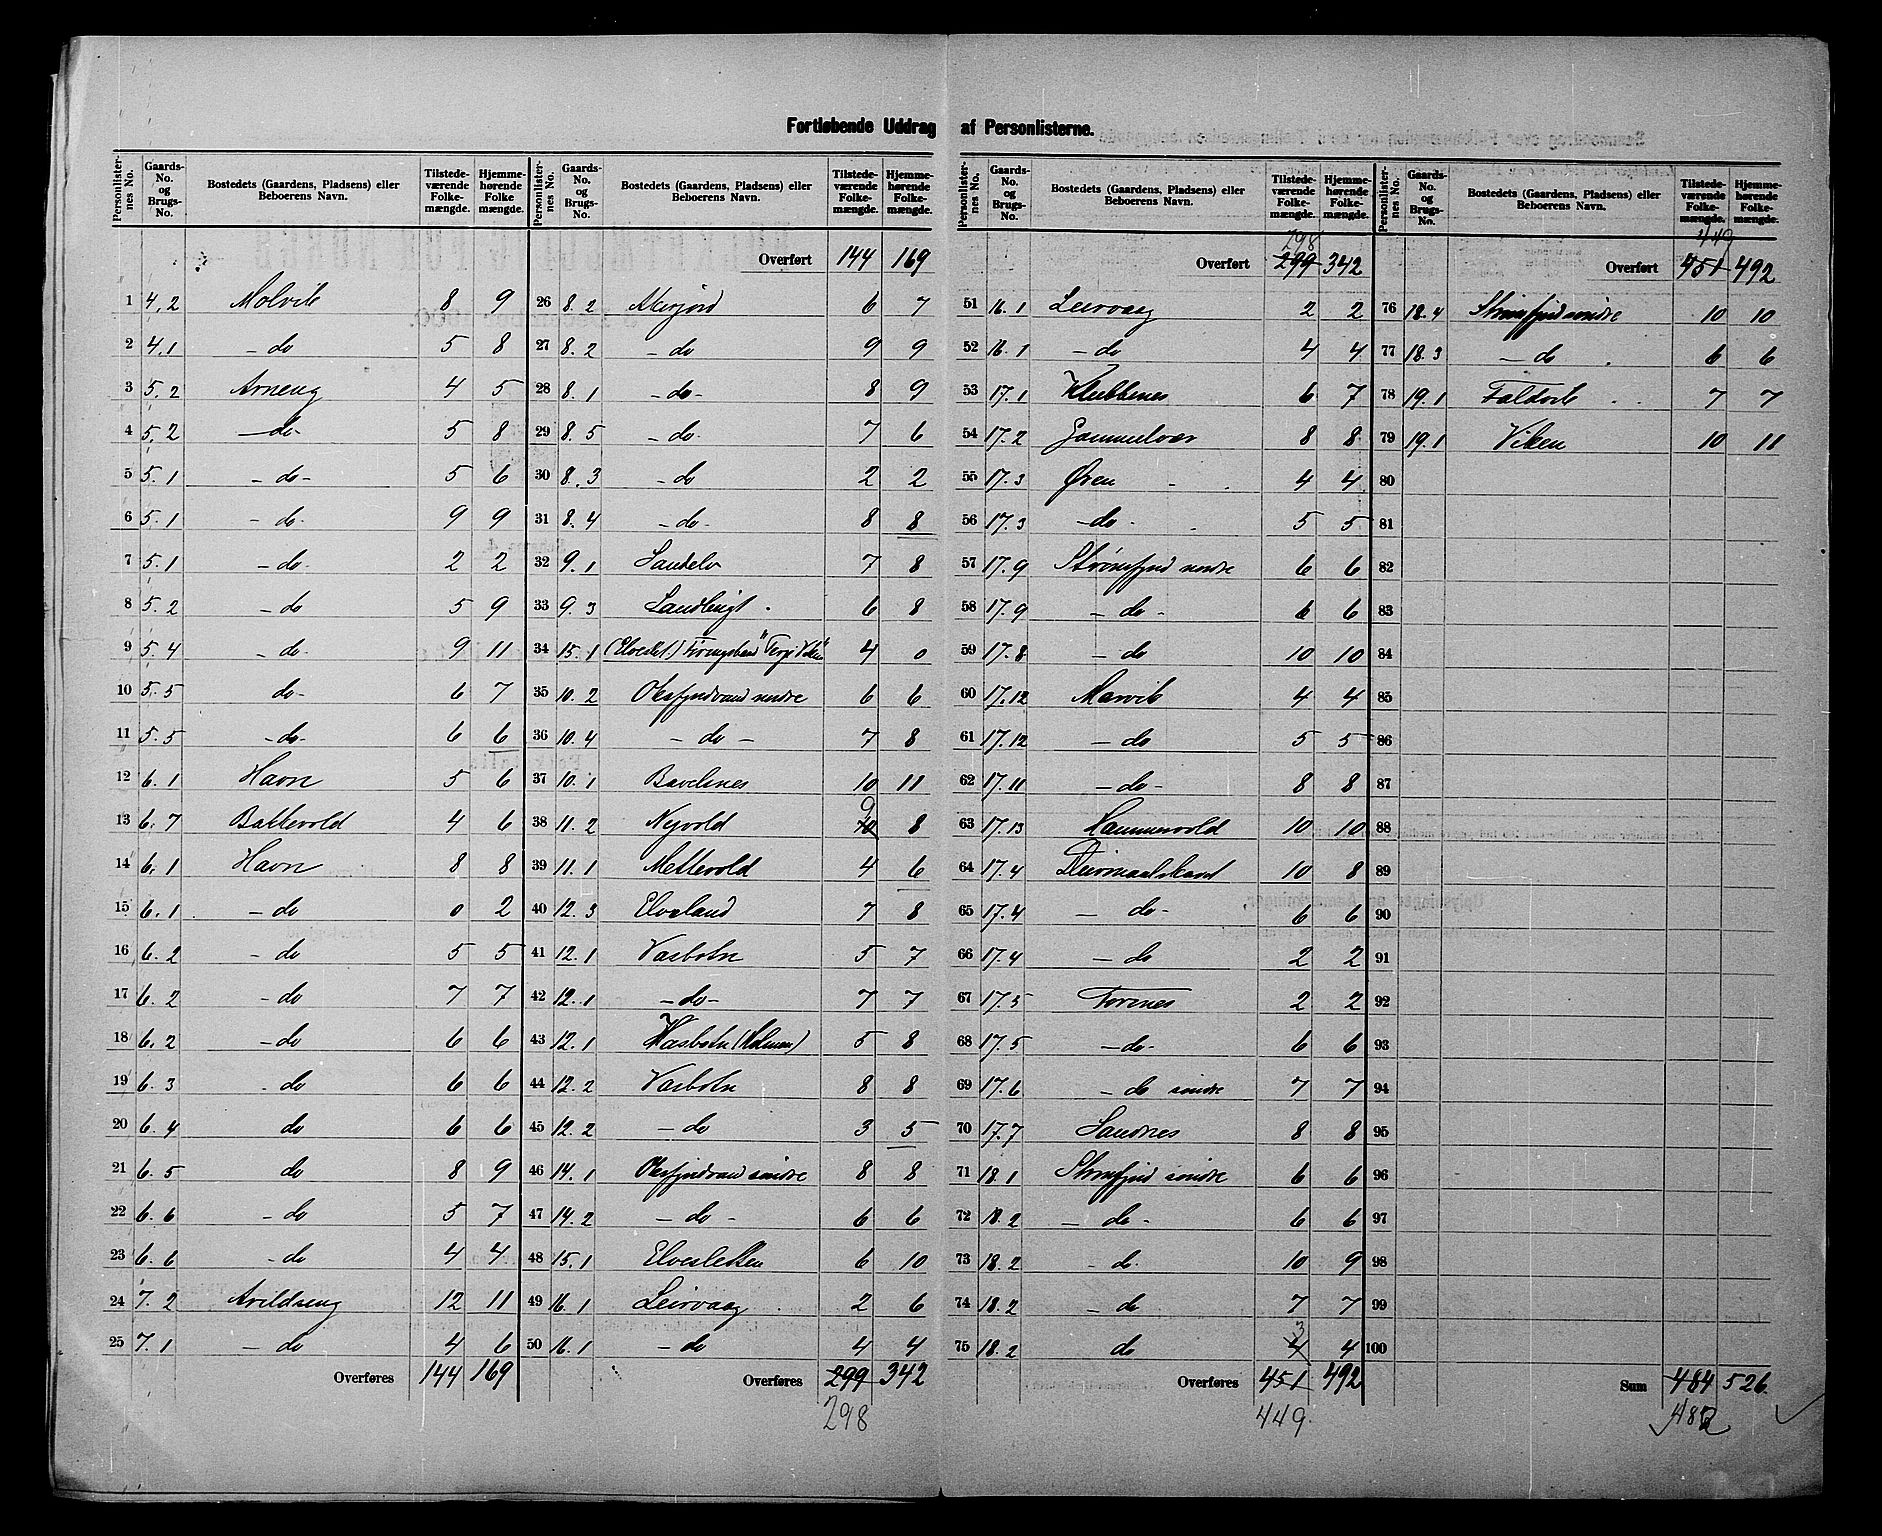 Fortløbende Uddrag af Personlisterne.
Personlister-nes No. | Gaards-No. og Brugs-No. | Bostedets (Gaardens, Pladsens) eller Beboerens Navn. | Tilstede-værende Folke-mængde. | Hjemme-hørende Folke mængde.
1 4,2 Molvik 8 9
2 4,1 - do 5 8
3 5,2 Arneng 4 5
4 5,2 - do- 5 8
5 5.1 - do- 5 6
6 5.1 - do- 9 9
7 5.1 - do- 2 2
8 5.2 - do 5 9
9 5.4 - do- 9 11
10 5.5 do- 6 7
11 5.5 - do- 6 6
12 6.1 Havn 5 6
13 6.7 Battevold 4 6
14 6.1 Havn 8 8
15 6.1 - do 0 2
16 6.2 - do 5 5
17 6.2 - do 7 7
18 6.2 - do 6 6
19 6.3 - do 6 6
20 6.4 do 6 6
21 6.5 do 8 9
22 6.6 - do 5 7
23 6.6 - do 4 4
24 7.2 Avildseng 12 11
25 7.1 - do 4 6
Overføres 144 169
Personlister-nes No. | Gaards-No. og Brugs-No. | Bostedets (Gaardens, Pladsens) eller Beboerens Navn. | Tilstede-værende Folke-mængde. | Hjemme-hørende Folke-mængde.
Overført 144 169
26 8.2 Akerjord 6 7
27 8.2 - do 9 9
28 8.1 - do- 8 9
29 8.5 - do- 7 6
30 8.3 - do 2 2
31 8.4 - do- 8 8
32 9.1 Sandelv 7 8
33 9.3 6 8
34 15.1 4 0
35 10.2 Oksfjordvand nordre 6 6
36 10.4 - do - 7 8
37 10.1 10 11
38 11.2 Nyvold 10 9 8
39 11.1 Mettevold 4 6
40 12.3 Elveland 7 8
41 12.1 Vasbotn 5 7
42 12.1 - do- 7 7
43 12.1 Vasbotn (Holmen) 5 8
44 12.2 Vasbotn 8 8
45 12.2 - do 3 5
46 14.1 Oksfjordvand søndre 8 8
47 14.2 - do - 6 6
48 15.1 Elvesletten 6 10
49 16.1 Leirvaag 2 6
50 16.1 - do 4 4
Overføres 299 342
298
Personlister-nes No. | Gaards-No. og Brugs-No. | Bostedets (Gaardens, Pladsens) eller Beboerens Navn. | Tilstede-værende Folke-mængde. | Hjemme-hørende Folke-mængde.
298
Overført 299 342
51 16.1 Leirvaag 2 2
52 16.1 - do 4 4
53 17.1 Klubbenes 6 7
54 17.2 Gammelvær 8 8
55 17.3 Øren 4 4
56 17.3 - do- 5 5
57 17.9 Strømfjord nordre 6 6
58 17.9 - do - 6 6
59 17.8 - do 10 10
60 17.12 Marvik 4 4
61 17.12 - do 5 5
62 17.11 - do- 8 8
63 17.13 Hammervold 10 10
64 17.4 10 8
65 17.4 - do- 6 6
66 17.4 - do 2 2
67 17.5 Tornes 2 2
68 17.5 - do- 6 6
69 17.6 - do søndre 7 7
70 17.7 Sandnes 8 8
71 18.1 Strømfjord søndre 6 6
72 18.2 - do - 6 6
73 18.2 - do 10 9
74 18.2 - do 7 7
75 18.2 do 4 3 4
Overføres 451 492
449.
Personlister-nes No. | Gaards-No. og Brugs-No. | Bostedets (Gaardens, Pladsens) eller Beboerens Navn. | Tilstede-værende Folke-mængde. | Hjemme-hørende Folke-mængde.
449
Overført 451 492
76 18.4 Strømfjord søndre 10 10
77 18.3 - do 6 6
78 19.1 Taltvik 7 7
79 19.1 Viken 10 11
80
81
82
83
84
85
86
87
88
89
90
91
92
93
94
95
96
97
98
99
100
Sum 484 526.
482